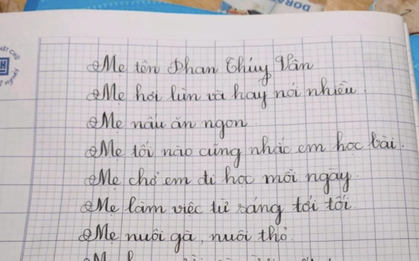 Mẹ tên Phan Thúy Vân
Mẹ hơi lùn và hay nói nhiều.
Mẹ nấu ăn ngon
Mẹ tối nào cũng nhắc em học bài.
Mẹ chở em đi học mỗi ngày
Mẹ làm việc từ sáng tới tối
Mẹ nuôi gà, nuôi thỏ